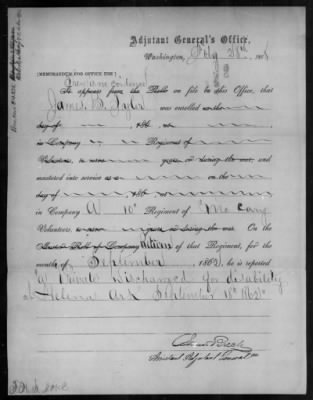 Adjutant General's Office,
Washington,
[MEMORANDUM FOR OFFICE USE.]
It appears from the Rolls on file in this Office, that
James B. Tyler was enrolled on the
day of , 186 , at
in Company Regiment of
Volunteers, to serve years or during the war, and
mustered into service as a on the
day of , 186 , at
in Company A 10" Regiment of Mo Cav
Volunteers, to serve years or during the war. On the
Muster Roll of Company Return of that Regiment, for the
month of September , 1862, he is reported
"A" Private Discharged for disability
at Helena Ark September 1862
Assistant Adjutant General